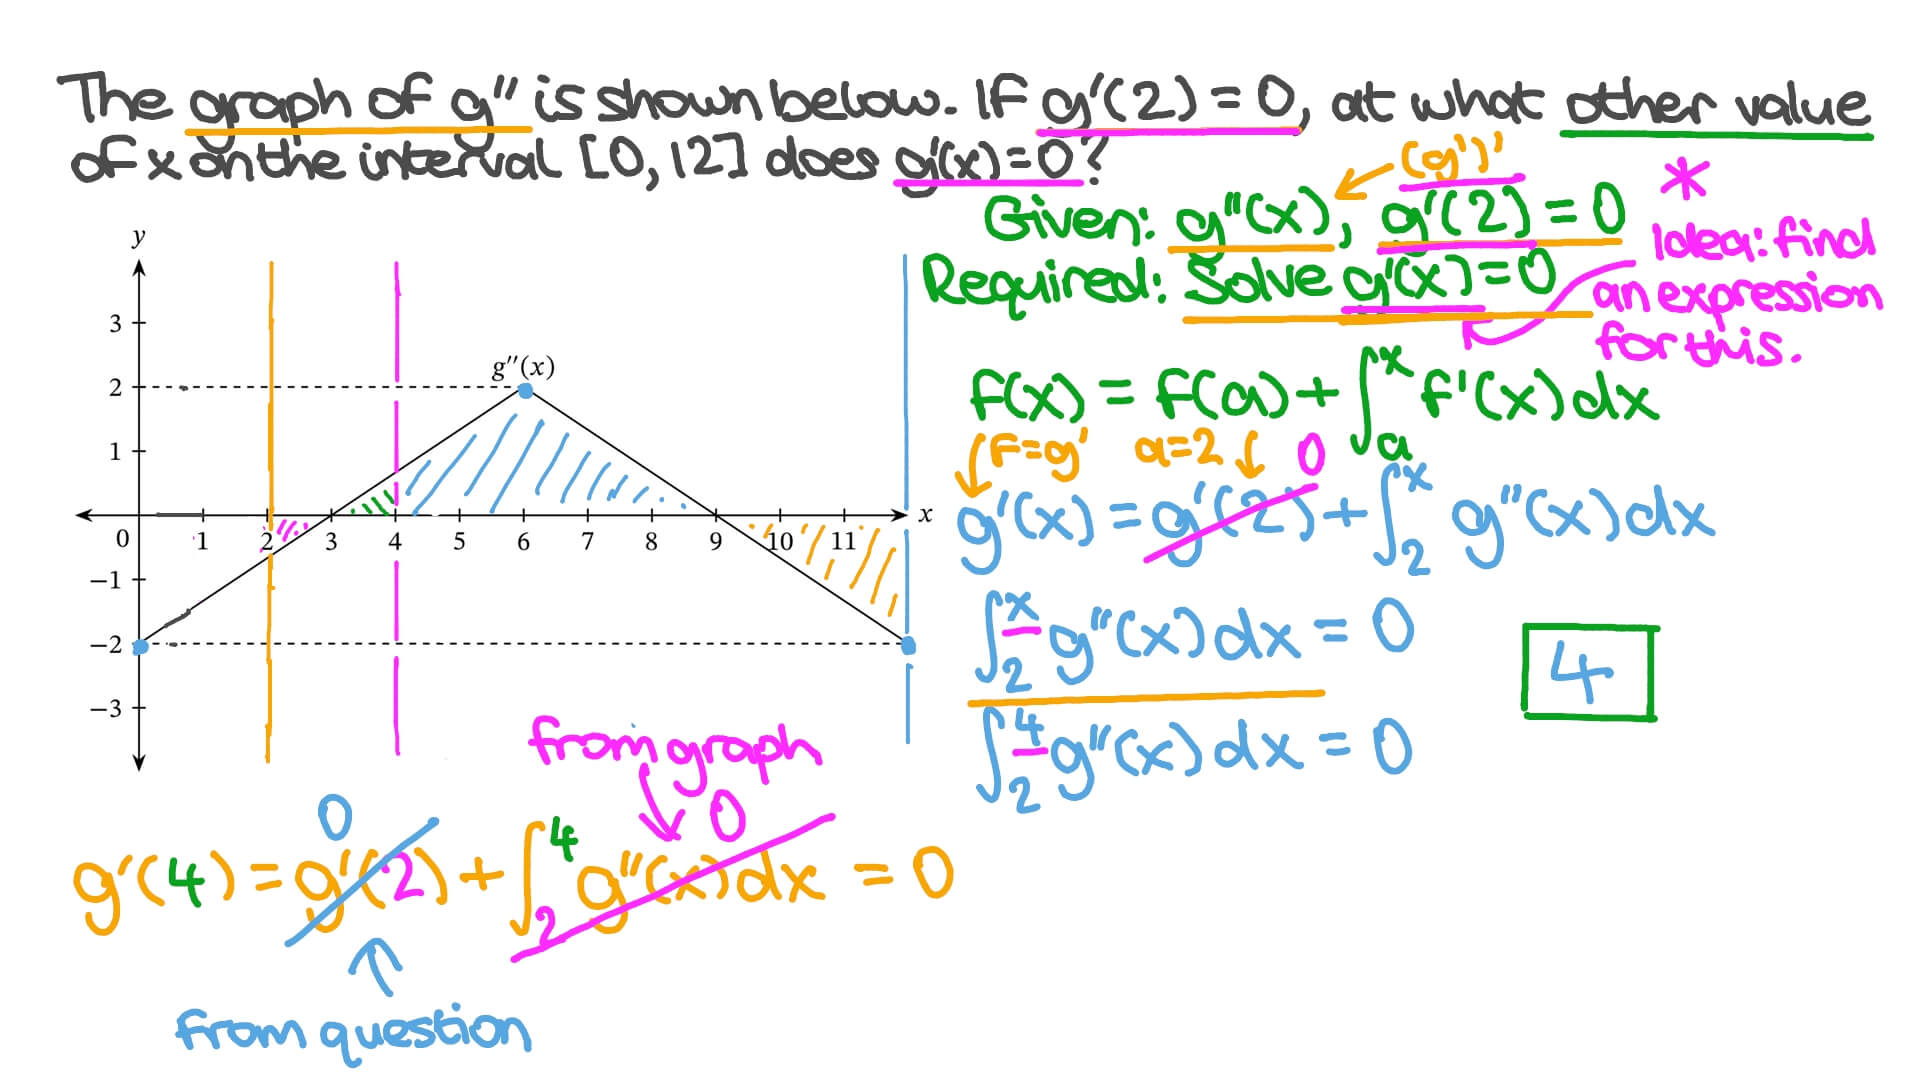 The graph of g″ is shown below. If g′(2) = 0, at what other value
of x on the interval [0, 12] does g′(x) = 0?
(g′)′
*
Given: g″(x), g′(2) = 0
Required: Solve g′(x) = 0
Idea: find
an expression
for this.
y
3
2
1
0
−1
−2
−3
g″(x)
1 2 3 4 5 6 7 8 9 10 11
x
f(x) = f(a) + ∫ₐˣ f′(x) dx
f = g′ a = 2 0
g′(x) = g′(2) + ∫₂ˣ g″(x) dx
∫₂ˣ g″(x) dx = 0
∫₂⁴ g″(x) dx = 0
4
from graph
0 0
g′(4) = g′(2) + ∫₂⁴ g″(x) dx = 0
from question